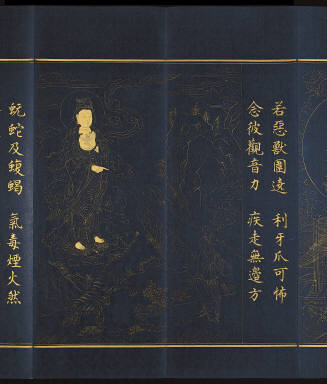 若惡獸圍遶　利牙爪可怖
念彼觀音力　疾走無邊方
蚖蛇及蝮蝎　氣毒煙火然